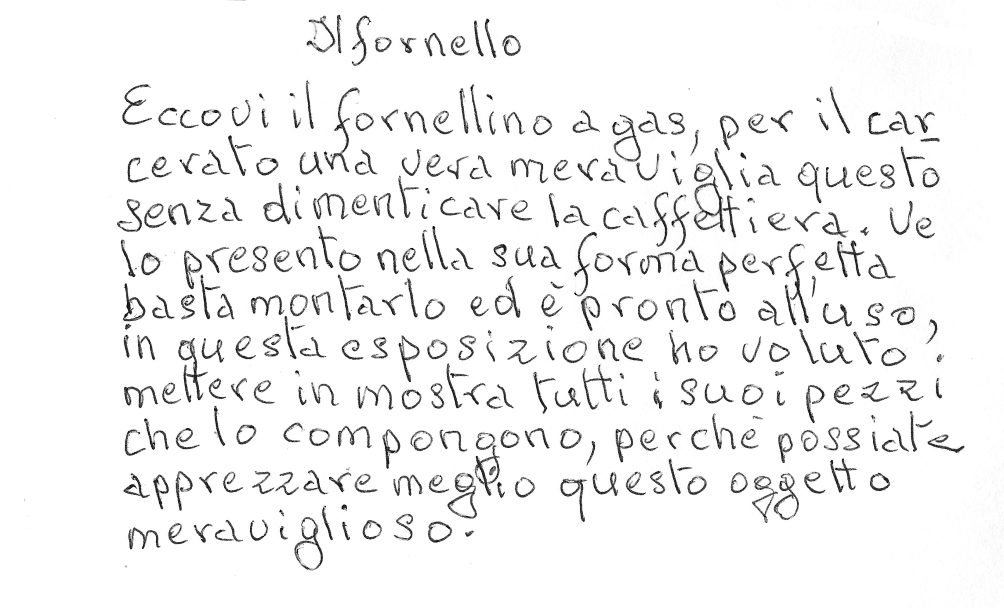 Il fornello
Eccovi il fornellino a gas, per il car
cerato una vera meraviglia questo
senza dimenticare la caffettiera. Ve
lo presento nella sua forma perfetta
basta montarlo ed è pronto all'uso,
in questa esposizione ho voluto.
mettere in mostra tutti i suoi pezzi
che lo compongono, perchè possiate
apprezzare meglio questo oggetto
meraviglioso.